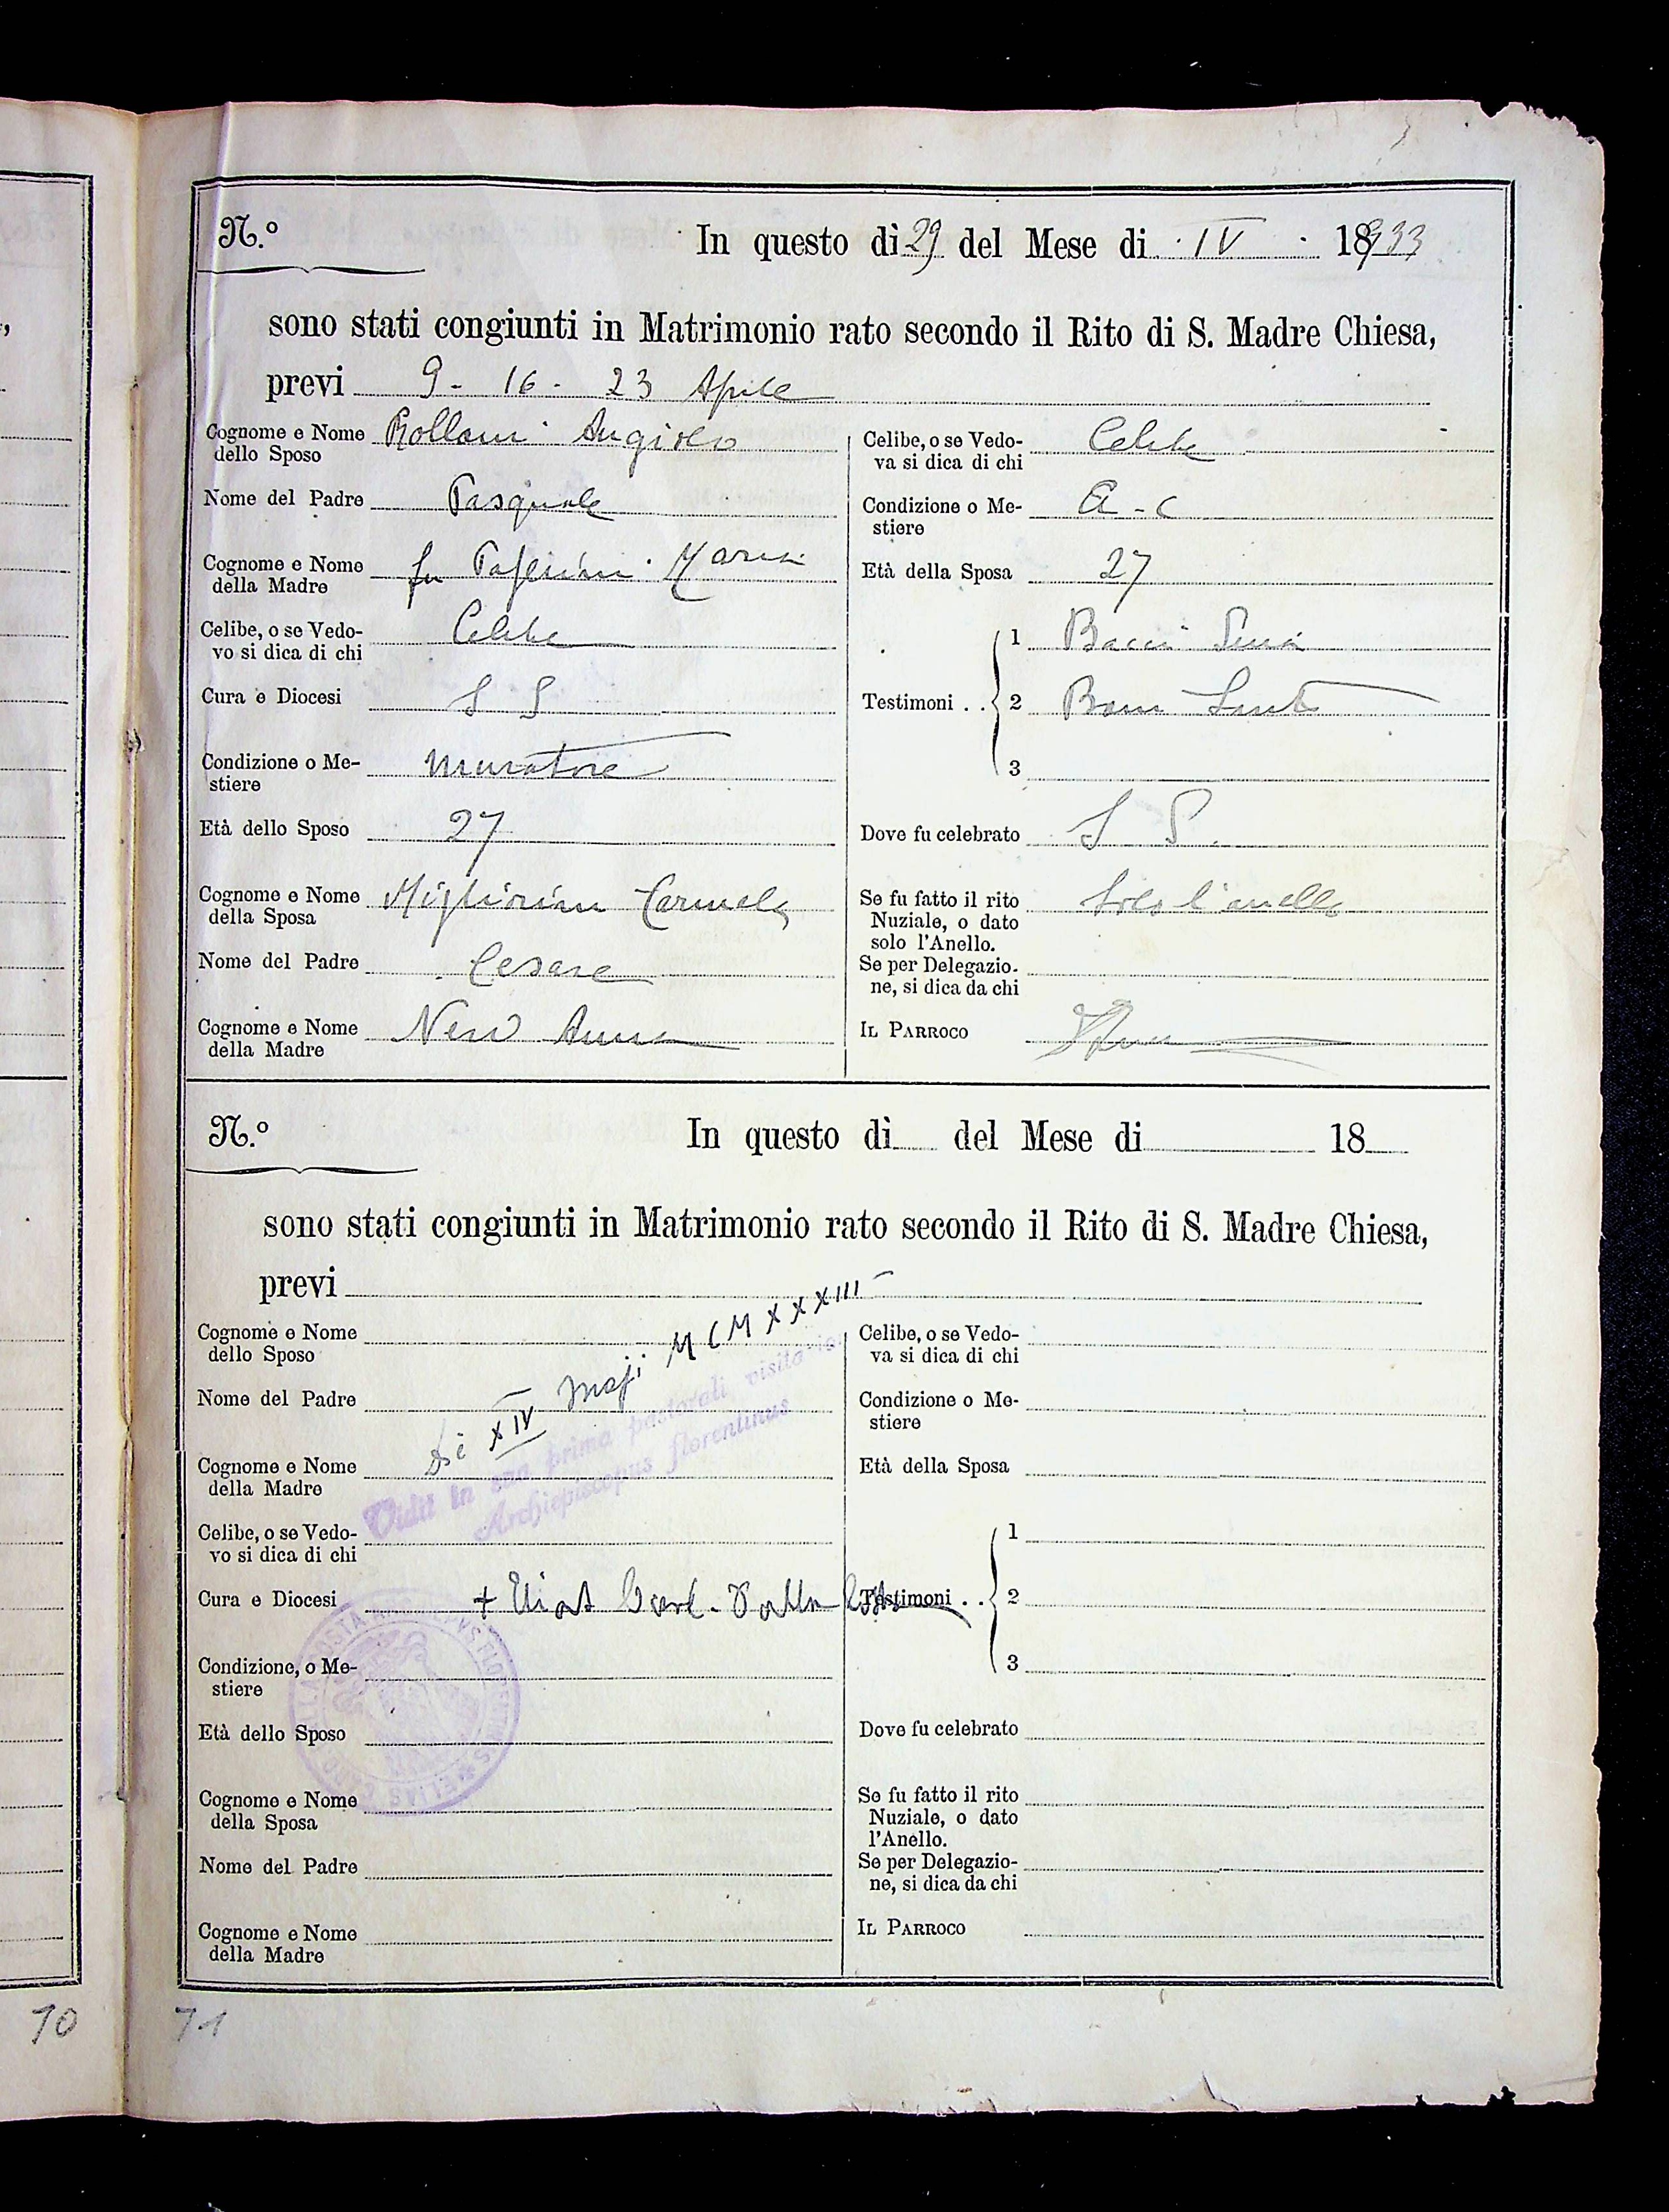 N.º In questo dì 29 del Mese di IV 18933
sono stati congiunti in Matrimonio rato secondo il Rito di S. Madre Chiesa,
previ 9 - 16 - 23 Aprile
Cognome e Nome
dello Sposo Angiolo
Nome del Padre Pasquale
Cognome e Nome
della Madre fu Maria
Celibe, o se Vedo-
vo si dica di chi Celibe
Cura e Diocesi S S
Condizione o Me-
stiere muratore
Età dello Sposo 27
Cognome e Nome
della Sposa Migliorini Carmela
Nome del Padre Cesare
Cognome e Nome
della Madre Neri Anna
Celibe, o se Vedo-
va si dica di chi Celibe
Condizione o Me-
stiere a - c
Età della Sposa 27
Testimoni . . 1 Bacci
2
3
Dove fu celebrato S S.
Se fu fatto il rito
Nuziale, o dato
solo l'Anello. Solo l'anello
Se per Delegazio-
ne, si dica da chi
IL PARROCO
N.º In questo dì del Mese di 18
sono stati congiunti in Matrimonio rato secondo il Rito di S. Madre Chiesa,
previ
Cognome e Nome
dello Sposo
Nome del Padre
Cognome e Nome
della Madre
Die XIV Maji MCMXXXIII
Vidit in prima pastorali visitatio
Archiepiscopus florentinus
Celibe, o se Vedo-
vo si dica di chi
Cura e Diocesi
+ Elias Card. Dalla Costa
Condizione, o Me-
stiere
Età dello Sposo
Cognome e Nome
della Sposa
Nome del Padre
Cognome e Nome
della Madre
Celibe, o se Vedo-
va si dica di chi
Condizione o Me-
stiere
Età della Sposa
Testimoni . . 1
2
3
Dove fu celebrato
Se fu fatto il rito
Nuziale, o dato
l'Anello.
Se per Delegazio-
ne, si dica da chi
IL PARROCO
70
71